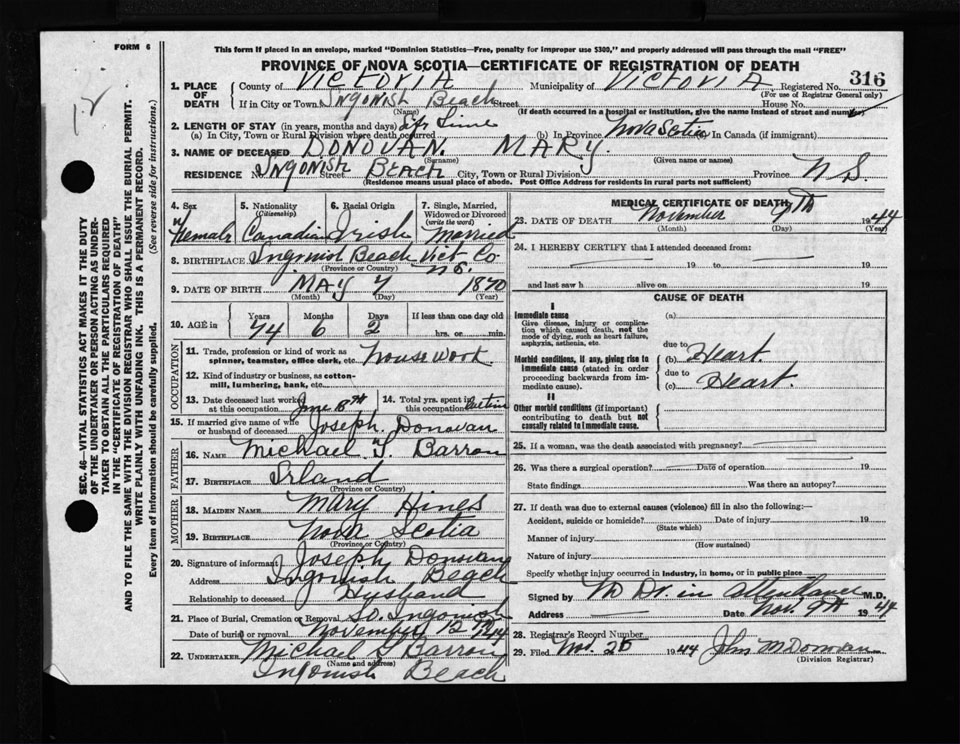 FORM 6
This form if placed in an envelope, marked "Dominion Statistics—Free, penalty for improper use $300," and properly addressed will pass through the mail "FREE"
PROVINCE OF NOVA SCOTIA—CERTIFICATE OF REGISTRATION OF DEATH
316
1. PLACE OF DEATH
County of VICTORIA Municipality of VICTORIA Registered No.
(For use of Registrar General only)
If in City or Town Ingonish Beach Street House No.
(Name) (If death occurred in a hospital or institution, give the name instead of street and number)
2. LENGTH OF STAY (in years, months and days)
(a) In City, Town or Rural Division where death occurred Life Time (b) In Province Nova Scotia In Canada (if immigrant)
3. NAME OF DECEASED DONOVAN. MARY.
(Surname) (Given name or names)
RESIDENCE No. Ingonish Street BEACH City, Town or Rural Division Province N.S.
(Residence means usual place of abode. Post Office Address for residents in rural parts not sufficient)
4. Sex Female
5. Nationality (Citizenship) Canadian
6. Racial Origin Irish
7. Single, Married, Widowed or Divorced (write the word) Married
8. BIRTHPLACE Ingonish Beach Vict Co N.S.
(Province or Country)
9. DATE OF BIRTH MAY 7 1870
(Month) (Day) (Year)
10. AGE in Years 74 Months 6 Days 2 If less than one day old
hrs. or min.
OCCUPATION
11. Trade, profession or kind of work as spinner, teamster, office clerk, etc. House Work.
12. Kind of industry or business, as cotton-mill, lumbering, bank, etc.
13. Date deceased last worked at this occupation June 8th
14. Total yrs. spent in this occupation
15. If married give name of wife or husband of deceased Joseph Donovan
FATHER
16. NAME Michael Barron
17. BIRTHPLACE Irland
(Province or Country)
MOTHER
18. MAIDEN NAME Mary Hines
19. BIRTHPLACE Nova Scotia
(Province or Country)
20. Signature of informant Joseph Donovan
Address Ingonish Beach
Relationship to deceased Husband
21. Place of Burial, Cremation or Removal So. Ingonish
Date of burial or removal November 12 1944
22. UNDERTAKER Michael Barron
(Name and address)
Ingonish Beach
MEDICAL CERTIFICATE OF DEATH
23. DATE OF DEATH November 9th 1944
(Month) (Day) (Year)
24. I HEREBY CERTIFY that I attended deceased from:
19 to 19
and last saw h alive on 19
CAUSE OF DEATH
I
Immediate cause (a)
Give disease, injury or complication which caused death, not the mode of dying, such as heart failure, asphyxia, asthenia, etc.
due to
Morbid conditions, if any, giving rise to immediate cause (stated in order proceeding backwards from immediate cause).
(b) Heart
due to
(c) Heart.
II
Other morbid conditions (if important) contributing to death but not causally related to immediate cause.
25. If a woman, was the death associated with pregnancy?
26. Was there a surgical operation? Date of operation 19
State findings Was there an autopsy?
27. If death was due to external causes (violence) fill in also the following:—
Accident, suicide or homicide? Date of injury 19
(State which)
Manner of injury
(How sustained)
Nature of injury
Specify whether injury occurred in industry, in home, or in public place
Signed by No Dr. in attendance M.D.
Address Date Nov. 9th 1944
28. Registrar's Record Number
29. Filed Nov. 20 1944
(Division Registrar)
SEC. 46—VITAL STATISTICS ACT MAKES IT THE DUTY
OF THE UNDERTAKER OR PERSON ACTING AS UNDER-
TAKER TO OBTAIN ALL THE PARTICULARS REQUIRED
IN THE "CERTIFICATE OF REGISTRATION OF DEATH"
AND TO FILE THE SAME WITH THE DIVISION REGISTRAR WHO SHALL ISSUE THE BURIAL PERMIT.
WRITE PLAINLY WITH UNFADING INK. THIS IS A PERMANENT RECORD.
Every item of information should be carefully supplied. (See reverse side for instructions.)